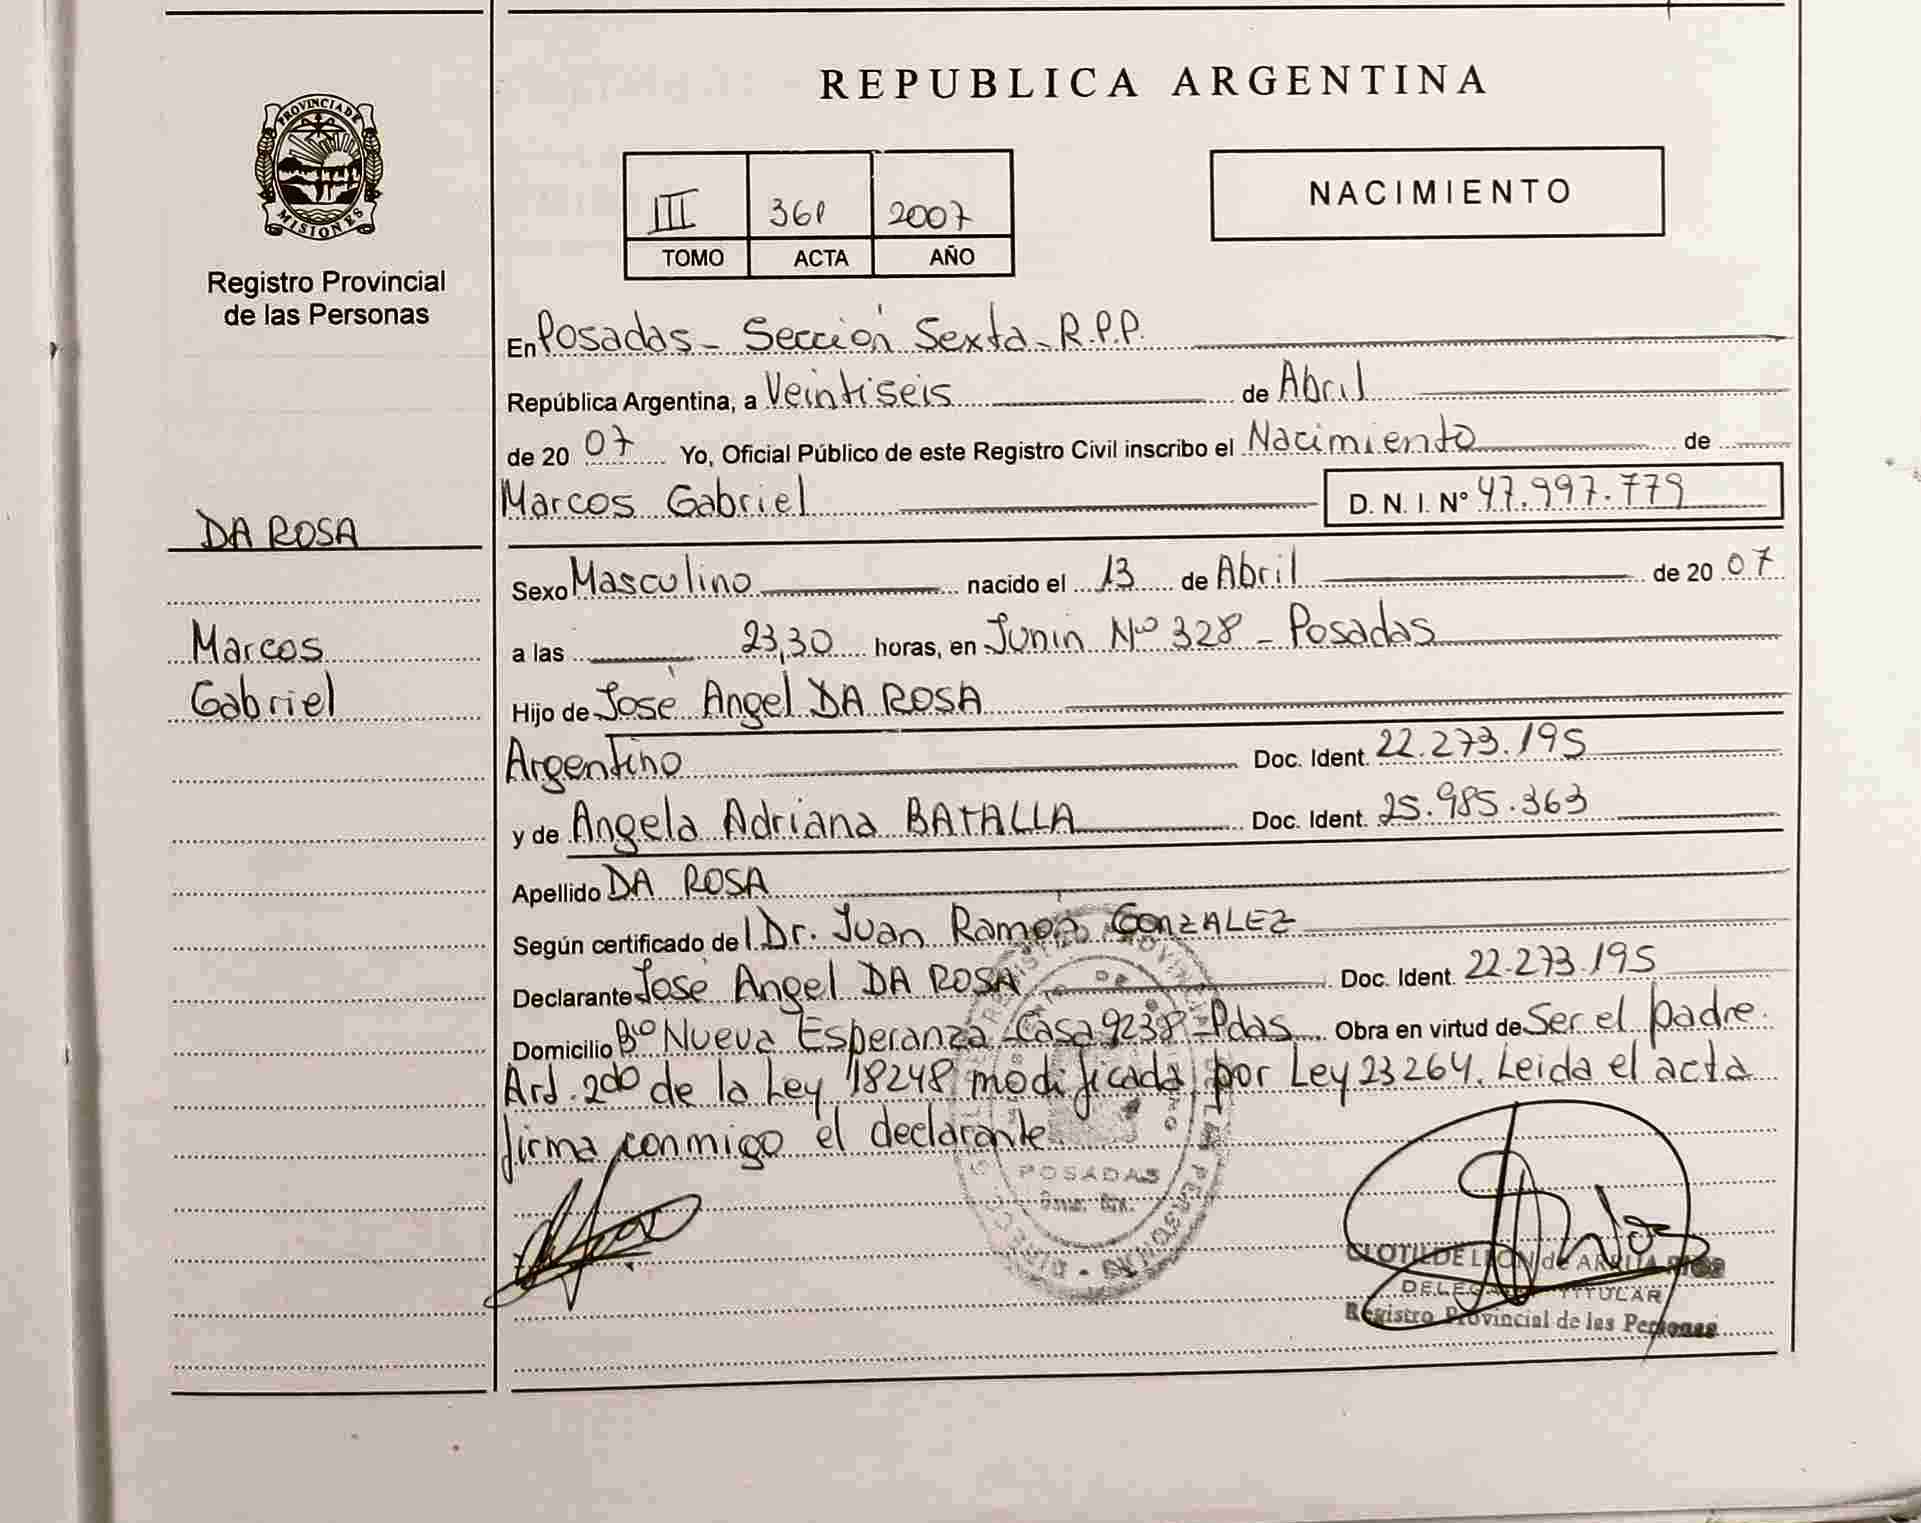 REPUBLICA ARGENTINA
PROVINCIA DE
MISIONES
Registro Provincial
de las Personas
III 361 2007
TOMO ACTA AÑO
NACIMIENTO
En Posadas - Sección Sexta - R.P.P.
República Argentina, a Veintiseis de Abril
de 20 07 Yo, Oficial Público de este Registro Civil inscribo el Nacimiento de
Marcos Gabriel D. N. I. Nº 47.997.779
DA ROSA
Marcos
Gabriel
Sexo Masculino nacido el 13 de Abril de 20 07
a las 23,30 horas, en Junin Nº 328 - Posadas
Hijo de José Angel DA ROSA
Argentino Doc. Ident. 22.273.195
y de Angela Adriana BATALLA Doc. Ident. 25.985.363
Apellido DA ROSA
Según certificado del Dr. Juan Ramón GONZALEZ
Declarante José Angel DA ROSA Doc. Ident. 22.273.195
Domicilio Bº Nueva Esperanza - Casa 9238 - Pdas Obra en virtud de Ser el padre.
Art. 2do de la Ley 18248 modificada por Ley 23264. Leida el acta
firma conmigo el declarante
POSADAS
CLOTILDE LEON de
DELEGADA TITULAR
Registro Provincial de las Personas